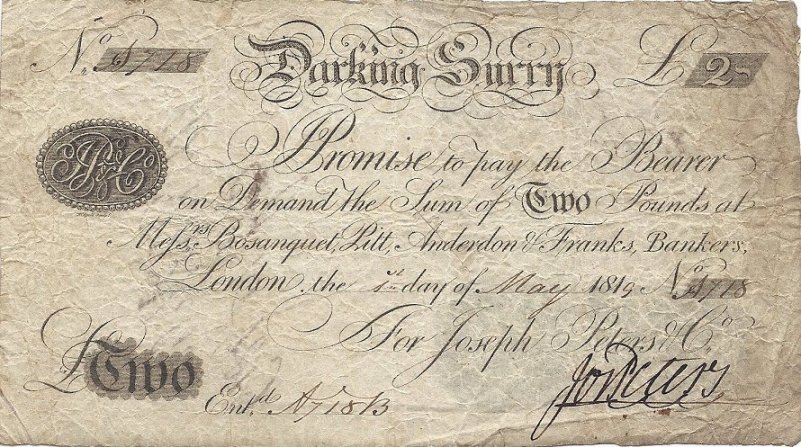 No. A718 Darking Surry £2~
JPs & Co
I Promise to pay the Bearer
on Demand the Sum of Two Pounds at
Messrs. Bosanquet, Pitt, Anderdon & Franks, Bankers,
London, the 1st day of May 1819 No. A718
For Joseph Peters & Co.
£Two
Entd. A718B
Jos Peters